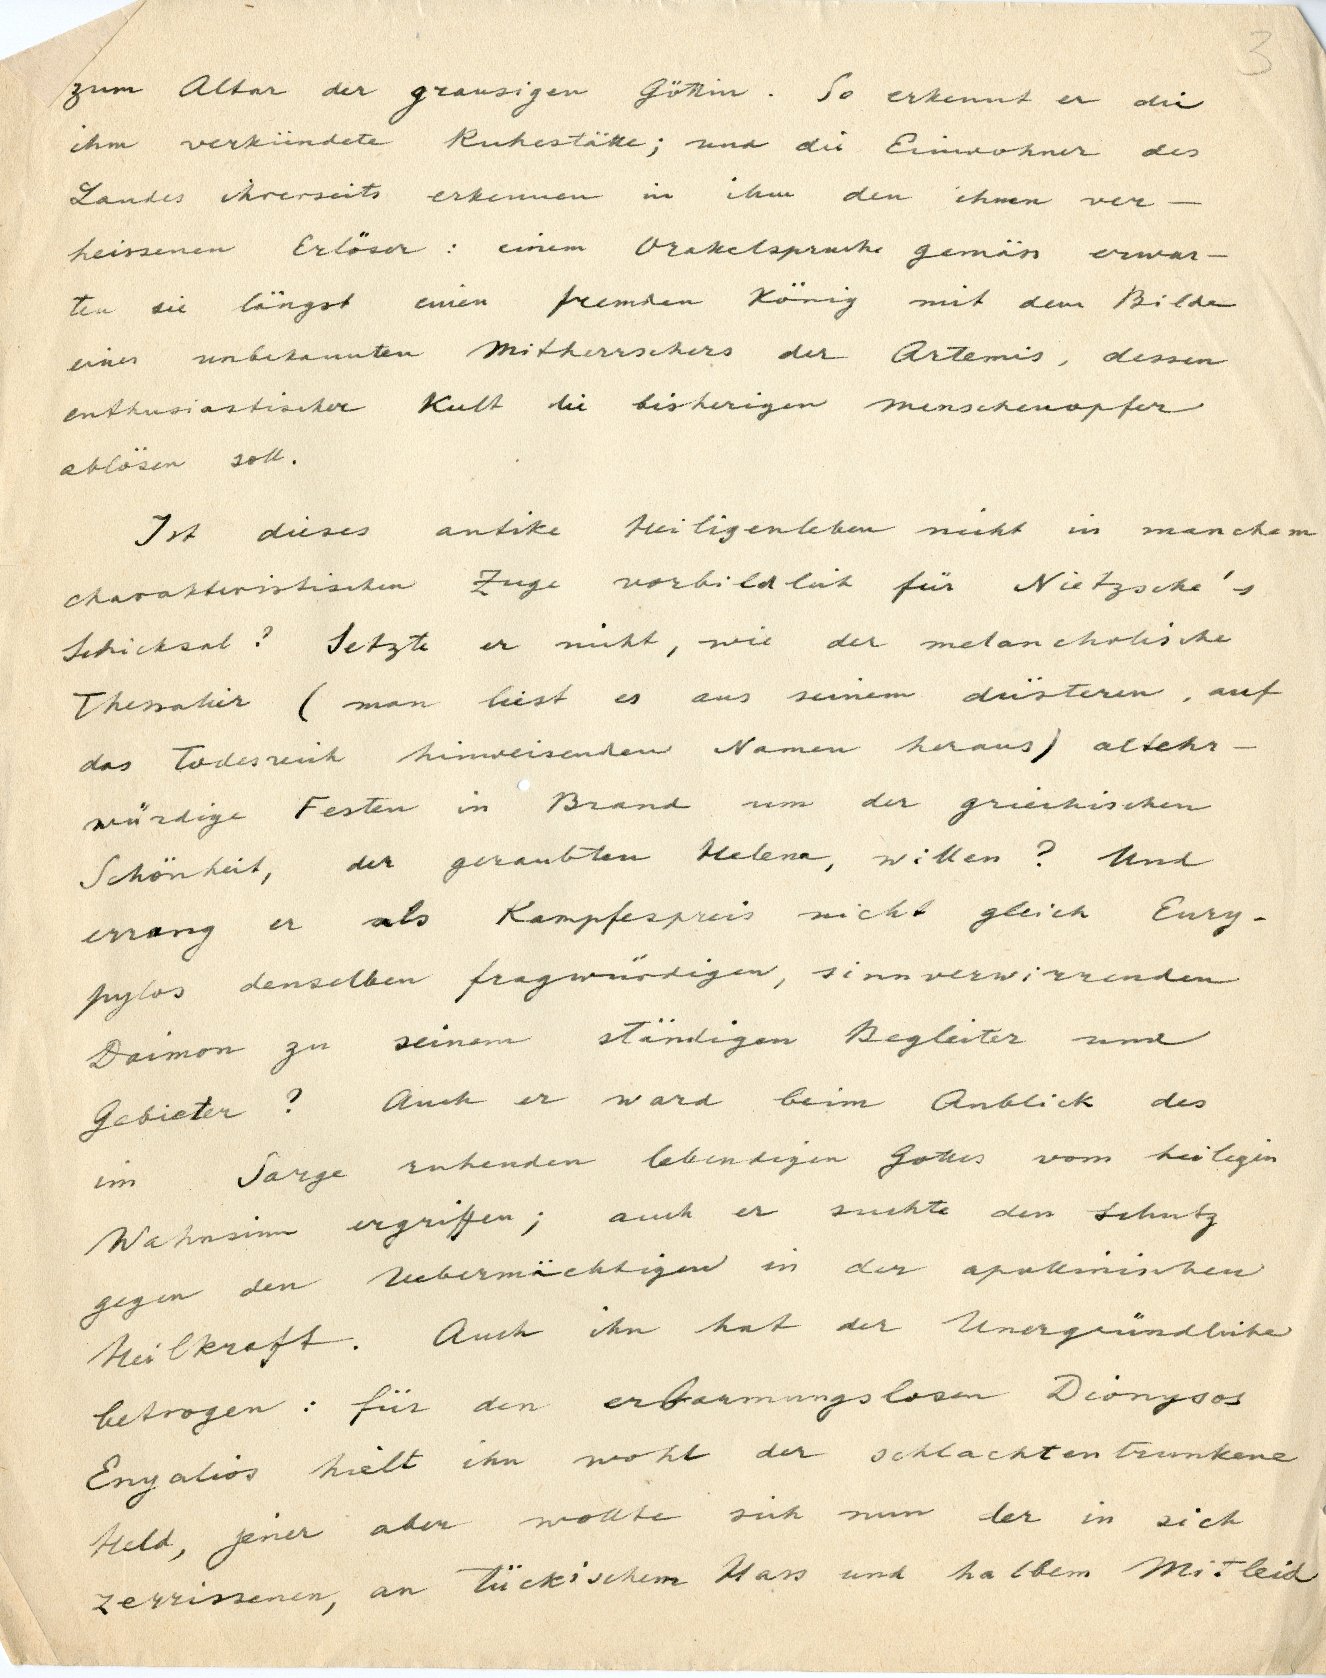 3
zum Altar der grausigen Göttin. So erkennt er die
ihm verkündete Ruhestätte; und die Einwohner des
Landes ihrerseits erkennen in ihm den ihnen ver-
heissenen Erlöser: einem Orakelspruche gemäss erwar-
ten sie längst einen fremden König mit dem Bilde
eines unbekannten Mitherrschers der Artemis, dessen
enthusiastischer Kult die bisherigen Menschenopfer
ablösen soll.
Ist dieses antike Heiligenleben nicht in manchem
charakteristischen Zuge vorbildlich für Nietzsche's
Schicksal? Setzte er nicht, wie der melancholische
Thessalier (man liest es aus seinem düsteren, auf
das Todesreich hinweisenden Namen heraus) altehr-
würdige Festen in Brand um der griechischen
Schönheit, der geraubten Helena, willen? Und
errang er als Kampfespreis nicht gleich Eury-
pylos denselben fragwürdigen, sinnverwirrenden
Daimon zu seinem ständigen Begleiter und
Gebieter? Auch er ward beim Anblick des
im Sarge ruhenden lebendigen Gottes vom heiligen
Wahnsinn ergriffen; auch er suchte den Schutz
gegen den Uebermächtigen in der apollinischen
Heilkraft. Auch ihn hat der Unergründliche
betrogen: für den erbarmungslosen Dionysos
Enyalios hielt ihn wohl der schlachtentrunkene
Held, jener aber wollte sich nun der in sich
zerrissenen, an tückischem Hass und halbem Mitleid